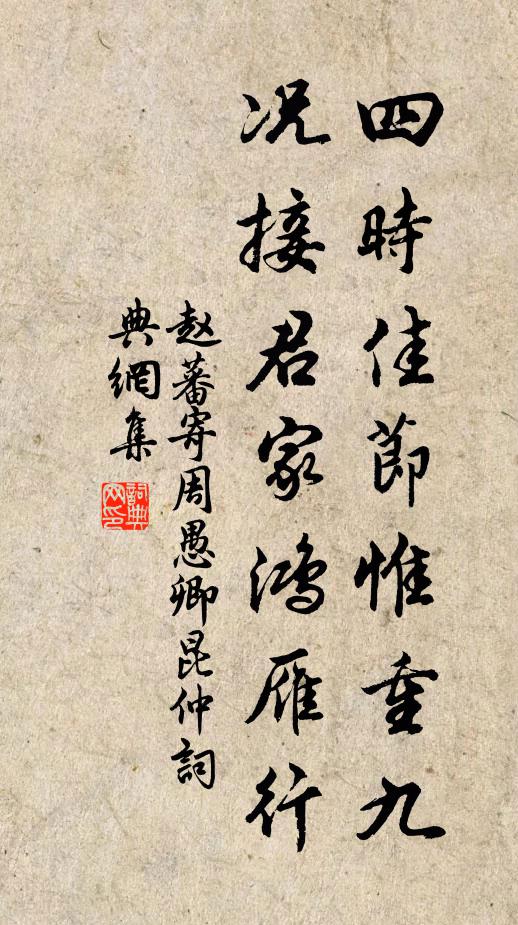 四時佳節惟重九
况接君家鴻雁行
赵蕃寄周愚卿昆仲詞
典網集
詞典
网印